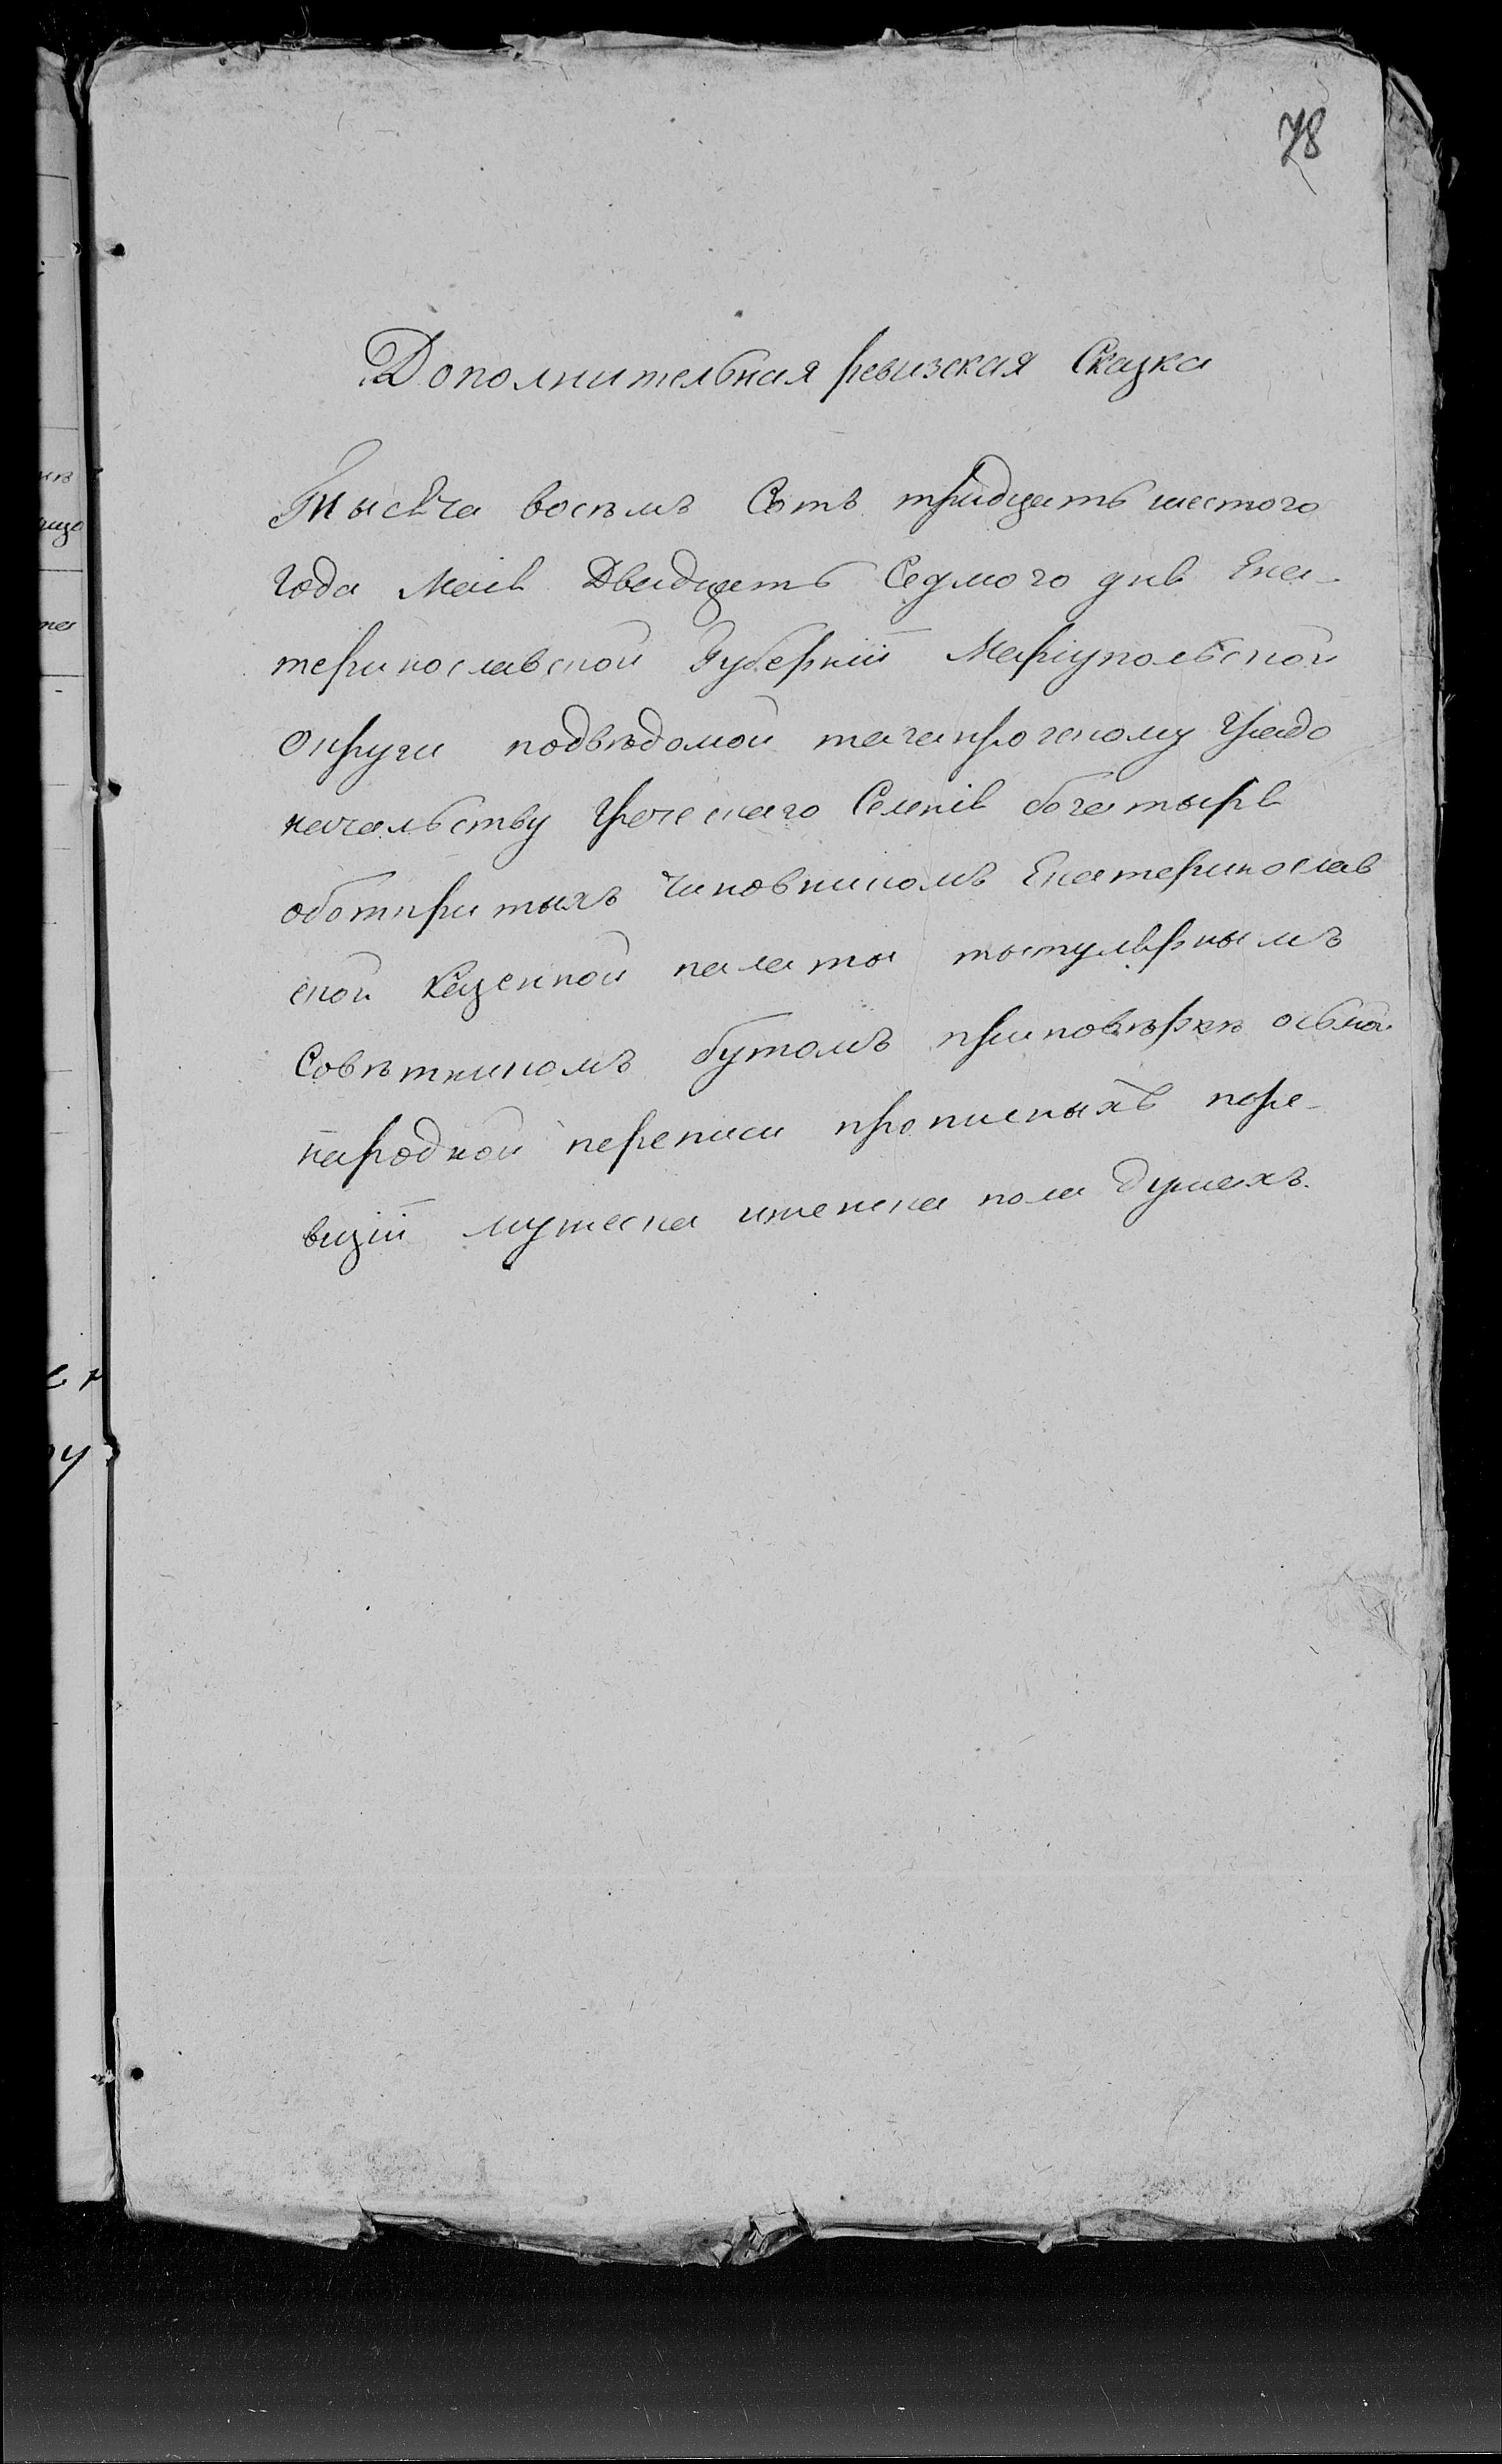 78
Дополнительная ревизская Сказка
Тысяча восемъ Сотъ тридцать шестого
года Маія Двадцать Седмого дня Ека-
теринославской Губерніи Маріупольской
Округи подвѣдомой таганрогскому Градо
начальству Греческаго Селенія богатыря
оботкрытыхъ Чиновникомъ Екатеринослав
ской Казенной палаты тытулярнымъ
Совѣтникомъ бутомъ приповѣрке осьмой
народной переписи прописныхъ поре-
визіи мужеска иженска пола душахъ.